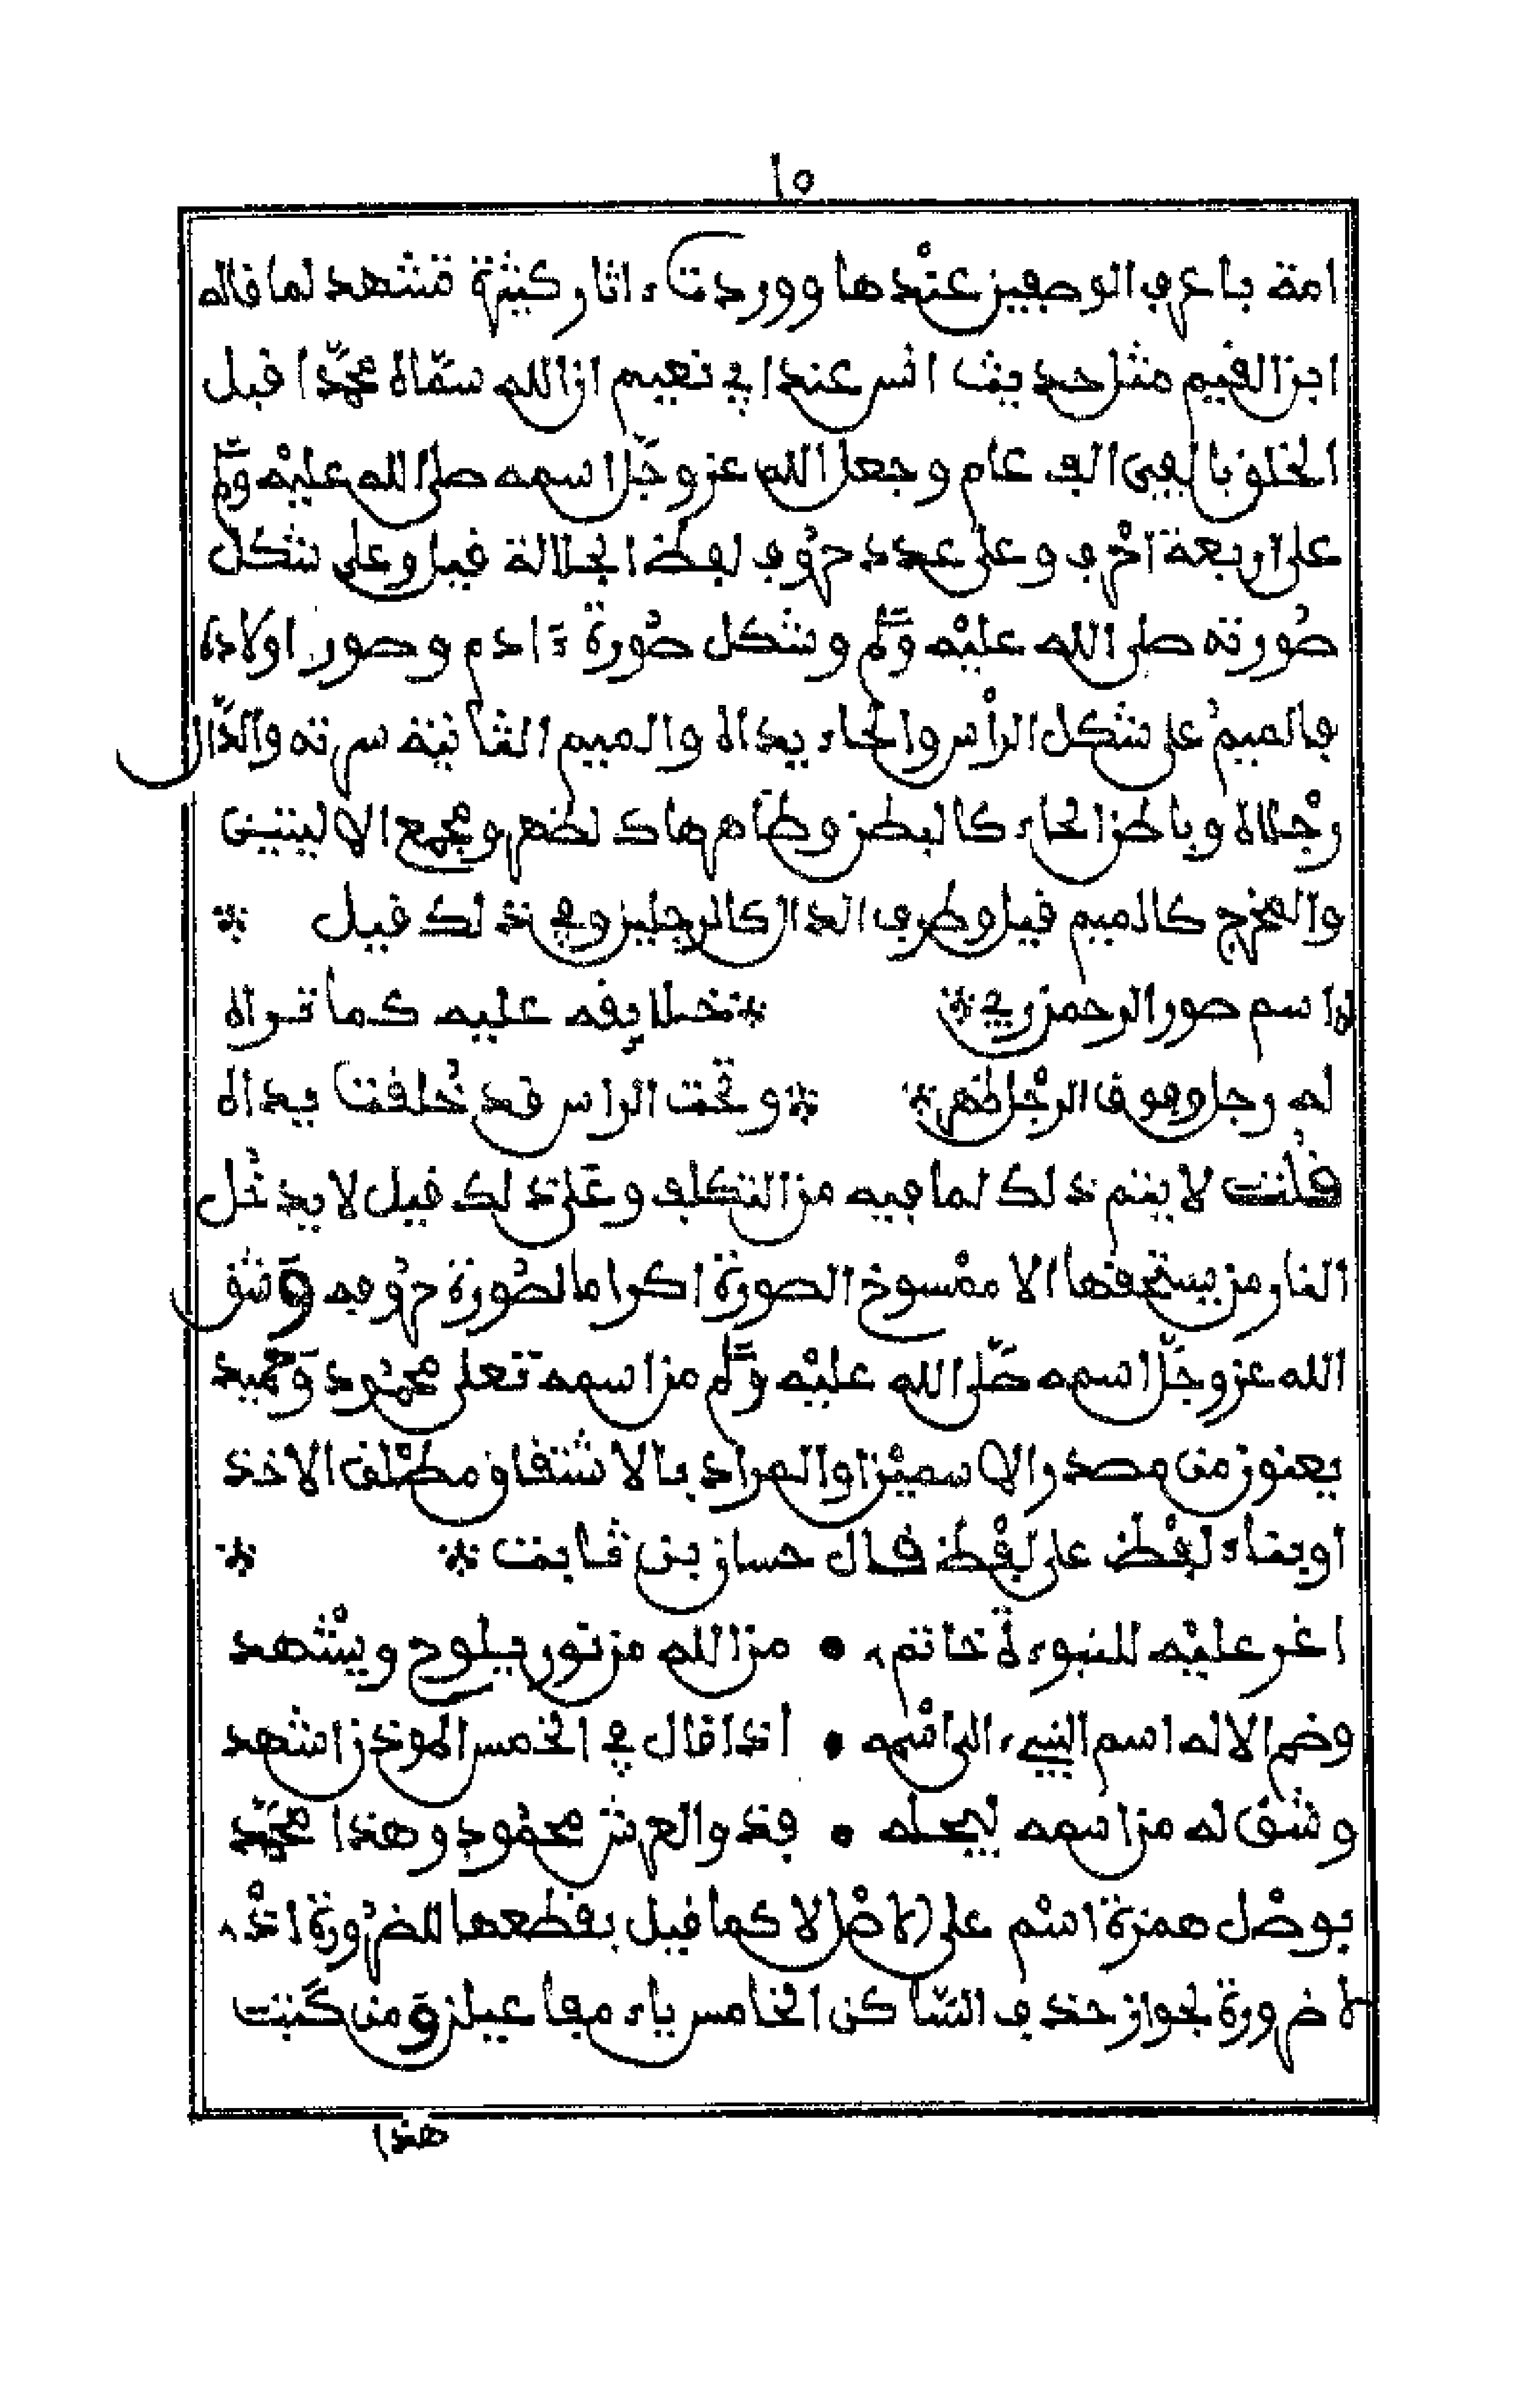 ١٥
امة باعرف الوصفين عندها ووردت ءاثار كثيرة تشهد لما قاله
ابن القيم مثل حديث انس عند ابي نعيم ان الله سمّاه محمّدا قبل
الخلق بالفي الف عام وجعل الله عز وجلّ اسمه صلى الله عليْه وسلم
على اربعة احْرف وعلى عدد حرُوف لفظ الجلالة قيل وعلى شكل
صُورته صلى الله عليْه وسلم وشكل صُورة ءادم وصور اولاده
فالميمُ على شكل الرأس والحاء يداه والميم الثانية سرته والدّال
رجْلاه وباطن الحاء كالبطن وظاهرها كالظهر ومجمع الاليتين
والمخرج كالميم قيل وطرف الدال كالرجلين وفي ذلك قيل *
له اسم صور الرحمن ربي * * خلايقه عليه كما تراه
له رجل وفوق الرجْل ظهر * * وتحت الراس قد خُلقت يداه
قلْت لا يتم ذلك لما فيه من التكلف وعلى ذلك قيل لا يدخُل
النار من يستحقها الا ممْسوخ الصورة اكراما لصُورة حرُوفه وشق
الله عز وجلّ اسمه صلّى الله عليْه وسلم من اسمه تعلى محمُود وحميد
يعنون من مصدر الاسميْن او المراد بالاشتقاق مطْلق الاخذ
او بناء لفْظ على لفْظ قال حسان بن ثابت * *
اغر عليْه للنبوءة خاتم • من الله من نور يلوح ويشْهد
وضم الاله اسم النبيء الى اسْمه • اذا قال في الخمس الموذن اشهد
وشق له من اسمه ليجله • فذو العرش محمُود وهذا محمّد
بوصْل همزة اسْم على الاصْل لا كما قيل بقطعها للضرُورة اذْ
لا ضرورة لجواز حذف السّاكن الخامس ياء مفاعيلن ومن كتبت
هذا